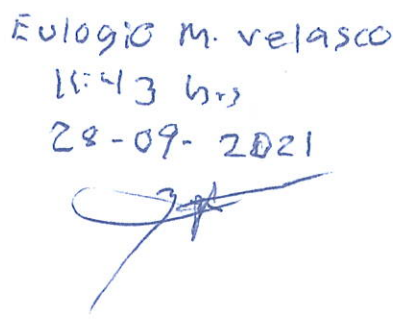 Eulogio M. velasco
11:43 hrs
28-09-2021